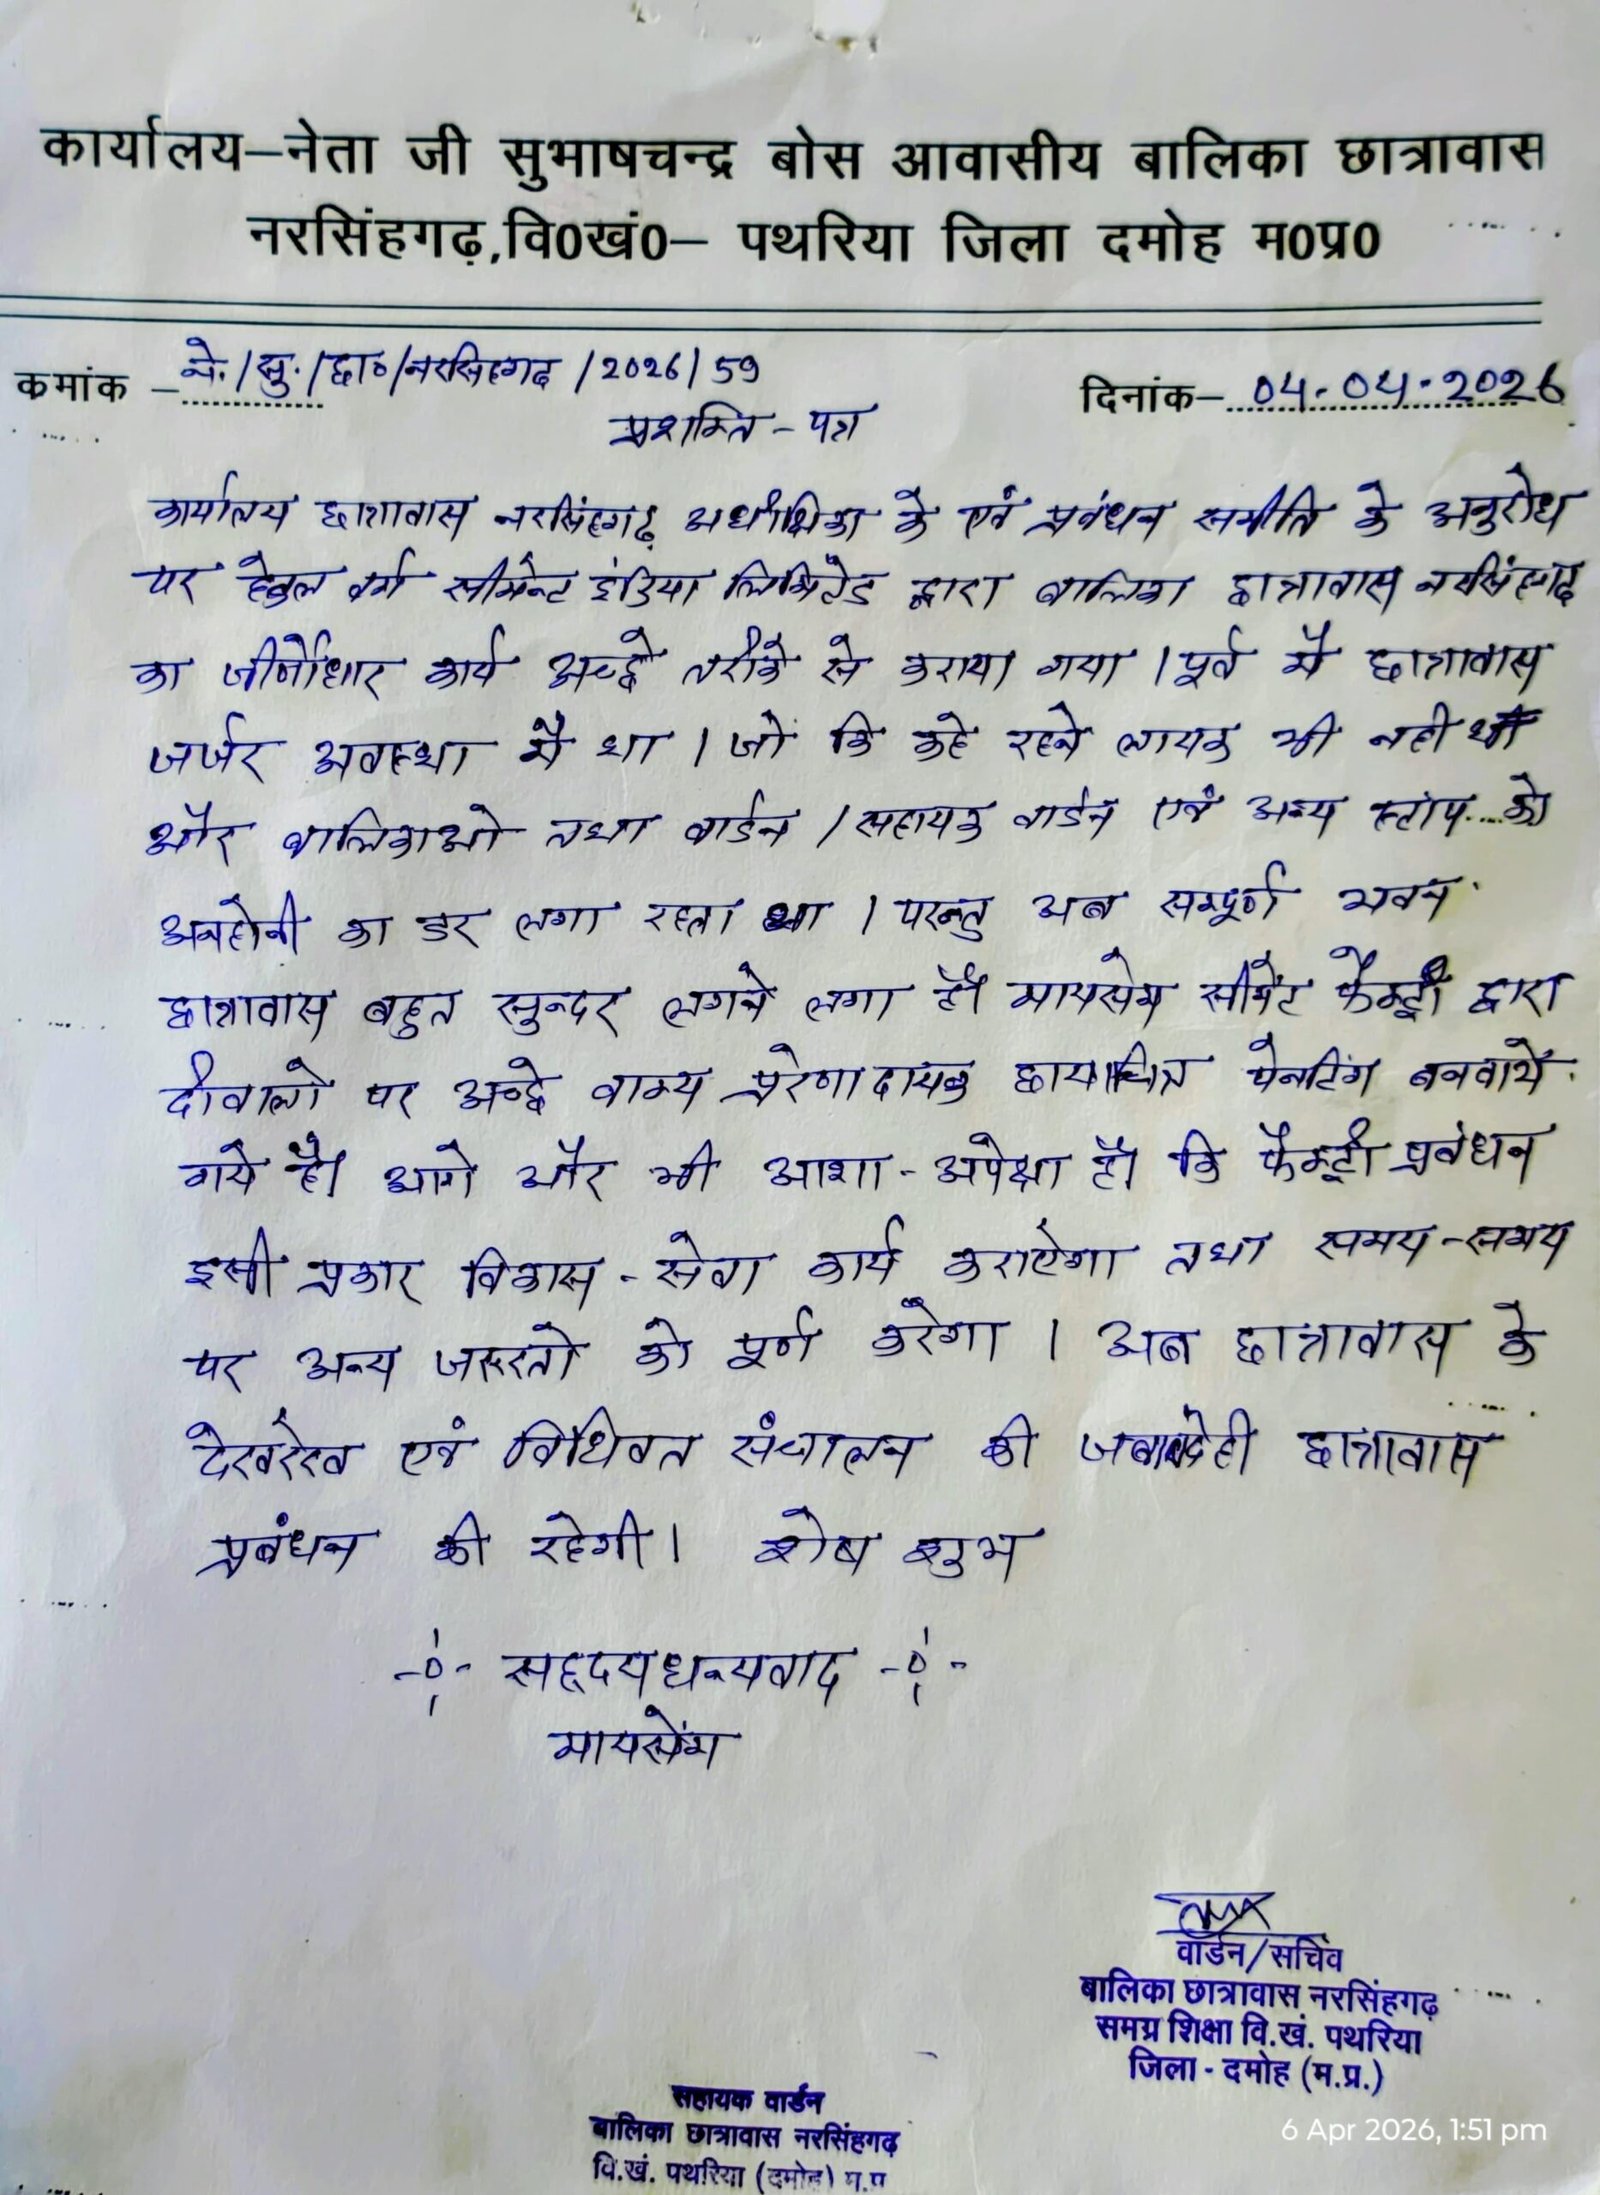 कार्यालय–नेता जी सुभाषचन्द्र बोस आवासीय बालिका छात्रावास
नरसिंहगढ़,वि0खं0– पथरिया जिला दमोह म0प्र0
कमांक – ने./सु./छा०/नरसिंहगढ /2026/59
दिनांक– 04-04-2026
प्रशस्ति - पत्र
कार्यालय छात्रावास नरसिंहगढ़ अधीक्षिका के एवं प्रबंधन समीति के अनुरोध
पर हेडुल वर्ग सीमेन्ट इंडिया लिमिटेड द्वारा बालिका छात्रावास नरसिंहगढ
का जीर्णोधार कार्य अच्छे तरीके से कराया गया । पूर्व में छात्रावास
जर्जर अवस्था मै था । जो कि कहे रहने लायक भी नही था
और बालिकाओ तथा वार्डन / सहायक वार्डन एवं अन्य स्टाप को
अनहोनी का डर लगा रहता था । परन्तु अब सम्पूर्ण भवन
छात्रावास बहुत सुन्दर लगने लगा है। मायसेम सीमेंट फैक्ट्री द्वारा
दीवालो पर अच्छे वाक्य प्रेरणादायक छायाचित्र पेनटिंग बनवाये
गये है। आगे और भी आशा - अपेक्षा है। कि फैक्ट्री प्रबंधन
इसी प्रकार विकास - सेवा कार्य कराऐगा तथा समय - समय
पर अन्य जरूरतो को पूर्ण करेगा । अब छात्रावास के
देखरेख एवं विधिवत संचालन की जबावदेही छात्रावास
प्रबंधन की रहेगी । शेष शुभ
सहृदय धन्यवाद
मायसेम
वार्डन/सचिव
बालिका छात्रावास नरसिंहगढ़
समग्र शिक्षा वि.खं. पथरिया
जिला - दमोह (म.प्र.)
सहायक वार्डन
बालिका छात्रावास नरसिंहगढ़
वि.खं. पथरिया (दमोह) म.प्र
6 Apr 2026, 1:51 pm